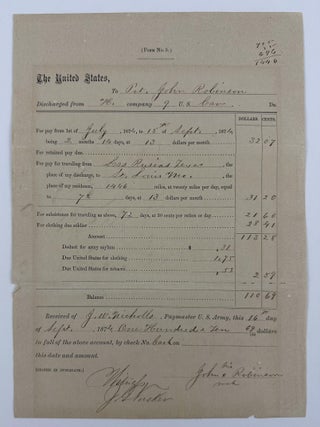 (FORM No. 5.)
725
696
1446
The United States,
To Pvt. John Robinson
Discharged from "H" company 9 U.S. Cav Dr.
DOLLARS CENTS.
For pay from 1st of July, 1874, to 15th Septr, 1874
being 2 months 14 days, at 13 dollars per month 32 07
For retained pay due
For pay for traveling from Texas
the place of my discharge, to St. Louis Mo.
the place of my residence, 1446 miles, at twenty miles per day, equal
to 72 days, at 13 dollars per month 31 20
For subsistence for traveling as above, 72 days, at 30 cents per ration or day 21 60
For clothing due soldier 28 41
Amount 113 28
Deduct for army asylum $ .31
Due United States for clothing 1.75
Due United States for stores $ .53
2 59
Balance 110 69
Received of J. W. Nicholls, Paymaster U. S. Army, this 16th day
of Septr, 1874, One Hundred & Ten 69/100 dollars
in full of the above account, by check No. Cash on
this date and amount.
(SIGNED IN DUPLICATE.)
John his x mark Robinson